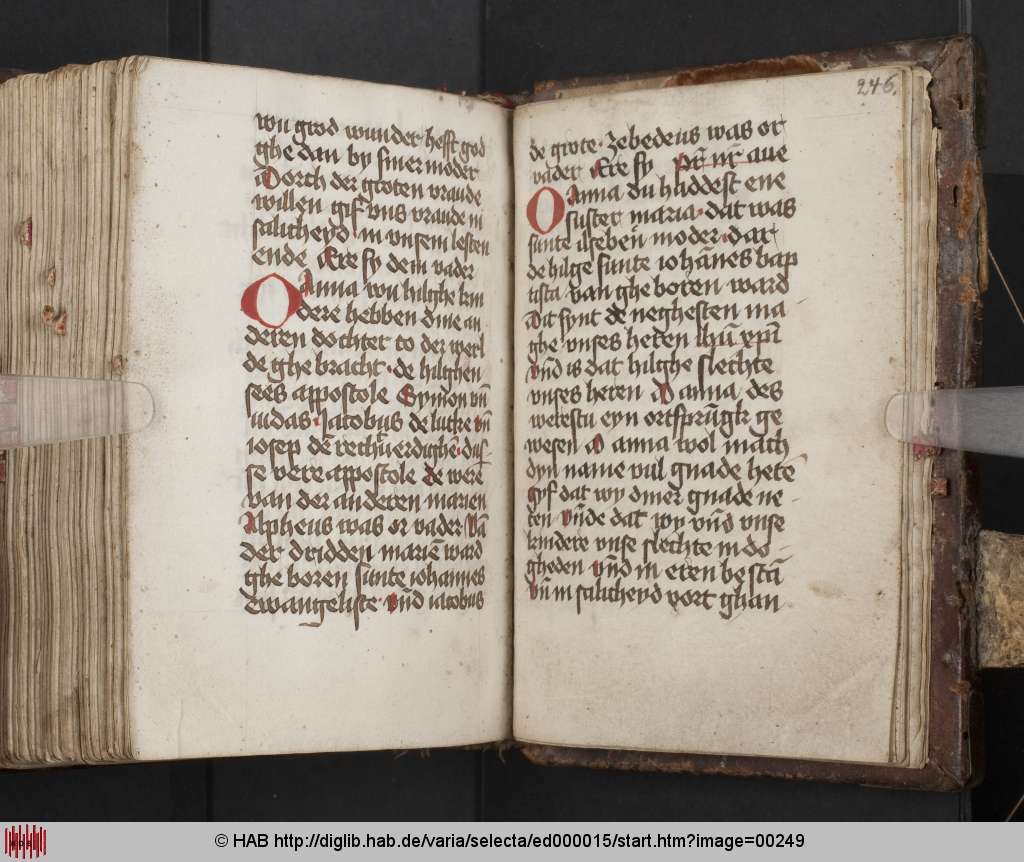 wu grod wunder hefft god
ghe dan by siner moder
Dorch der groten vraude
willen gif vns vraude in
salicheyd in vnsem lesten
ende Ere sy dem vader
O Anna wu hilghe kin
dere hebben dine an
deren dochter to der werl
de ghe bracht · de hilghen
sees appostole Symon vñ
iudas · Jacobus de luttke vñ
iosep de rechuerdighe · dus
se vere appostole de werē
van der anderen marien
Alpheus was or vader Vā
der dridden mariē ward
ghe boren sunte iohannes
ewangeliste · vnd iacobus
246.
de grote · zebedeus was or
vader Ere sy pr̄ nr̄ aue
O Anna du haddest ene
suster maria · dat was
sunte ilseben moder · dar
de hilge sunte iohānes bap
tista van ghe boren ward
Dit synt de neghesten ma
ghe vnses heren ihū xp̄i
vnd is dat hilghe slechte
vnses heren O anna des
werestu eyn ortsprūgk ge
wesen O anna wol mach
dyn name vul gnade hetē
gyf dat wy diner gnade ne
ten vnde dat wy vnd vnse
kindere vnse slechte in do
gheden vnd in eren bestā
vñ in salicheyd vort ghan
© HAB http://diglib.hab.de/varia/selecta/ed000015/start.htm?image=00249